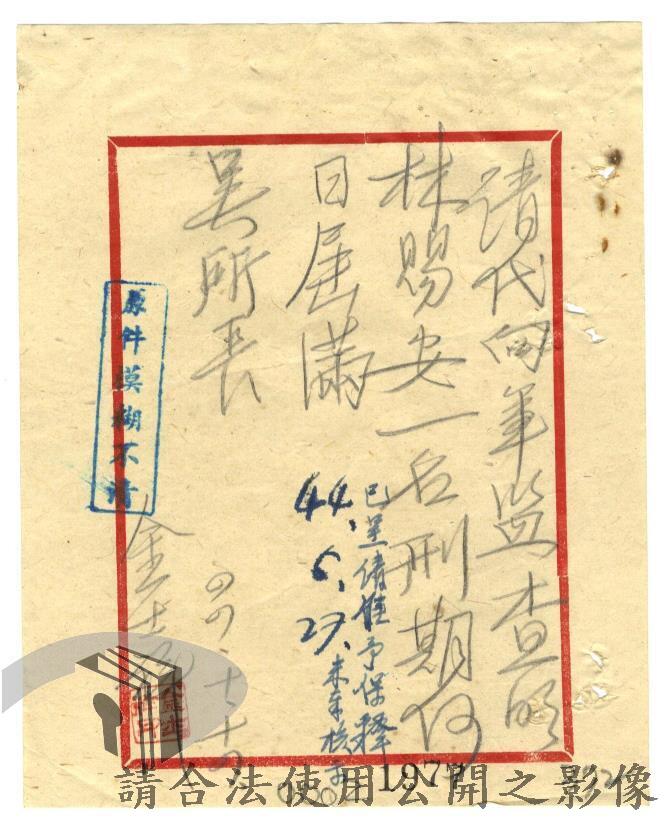 請代向軍監查明
林賜安一名刑期何
日屆滿
已呈請准予保釋
44、6、27、未奉核示
吳所長
原件模糊不清
請合法使用公開之影像